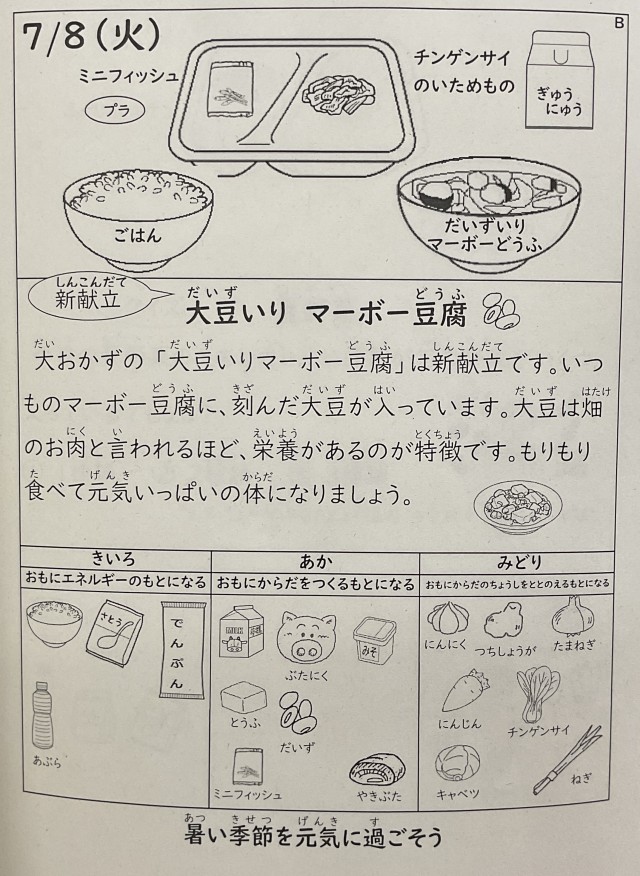 B
7/8(火)
ミニフィッシュ
プラ
チンゲンサイ
のいためもの
ぎゅう
にゅう
ごはん
だいずいり
マーボーどうふ
しんこんだて
新献立
だいず どうふ
大豆いり マーボー豆腐
だい だいず どうふ しんこんだて
大おかずの「大豆いりマーボー豆腐」は新献立です。いつ
どうふ きざ だいず はい だいず はたけ
ものマーボー豆腐に、刻んだ大豆が入っています。大豆は畑
にく い えいよう とくちょう
のお肉と言われるほど、栄養があるのが特徴です。もりもり
た げんき からだ
食べて元気いっぱいの体になりましょう。
きいろ あか みどり
おもにエネルギーのもとになる おもにからだをつくるもとになる おもにからだのちょうしをととのえるもとになる
さとう
でんぷん
あぶら
MILK
みそ
ぶたにく
とうふ
だいず
ミニフィッシュ
やきぶた
にんにく
つちしょうが
たまねぎ
にんじん
チンゲンサイ
キャベツ
ねぎ
あつ きせつ げんき す
暑い季節を元気に過ごそう